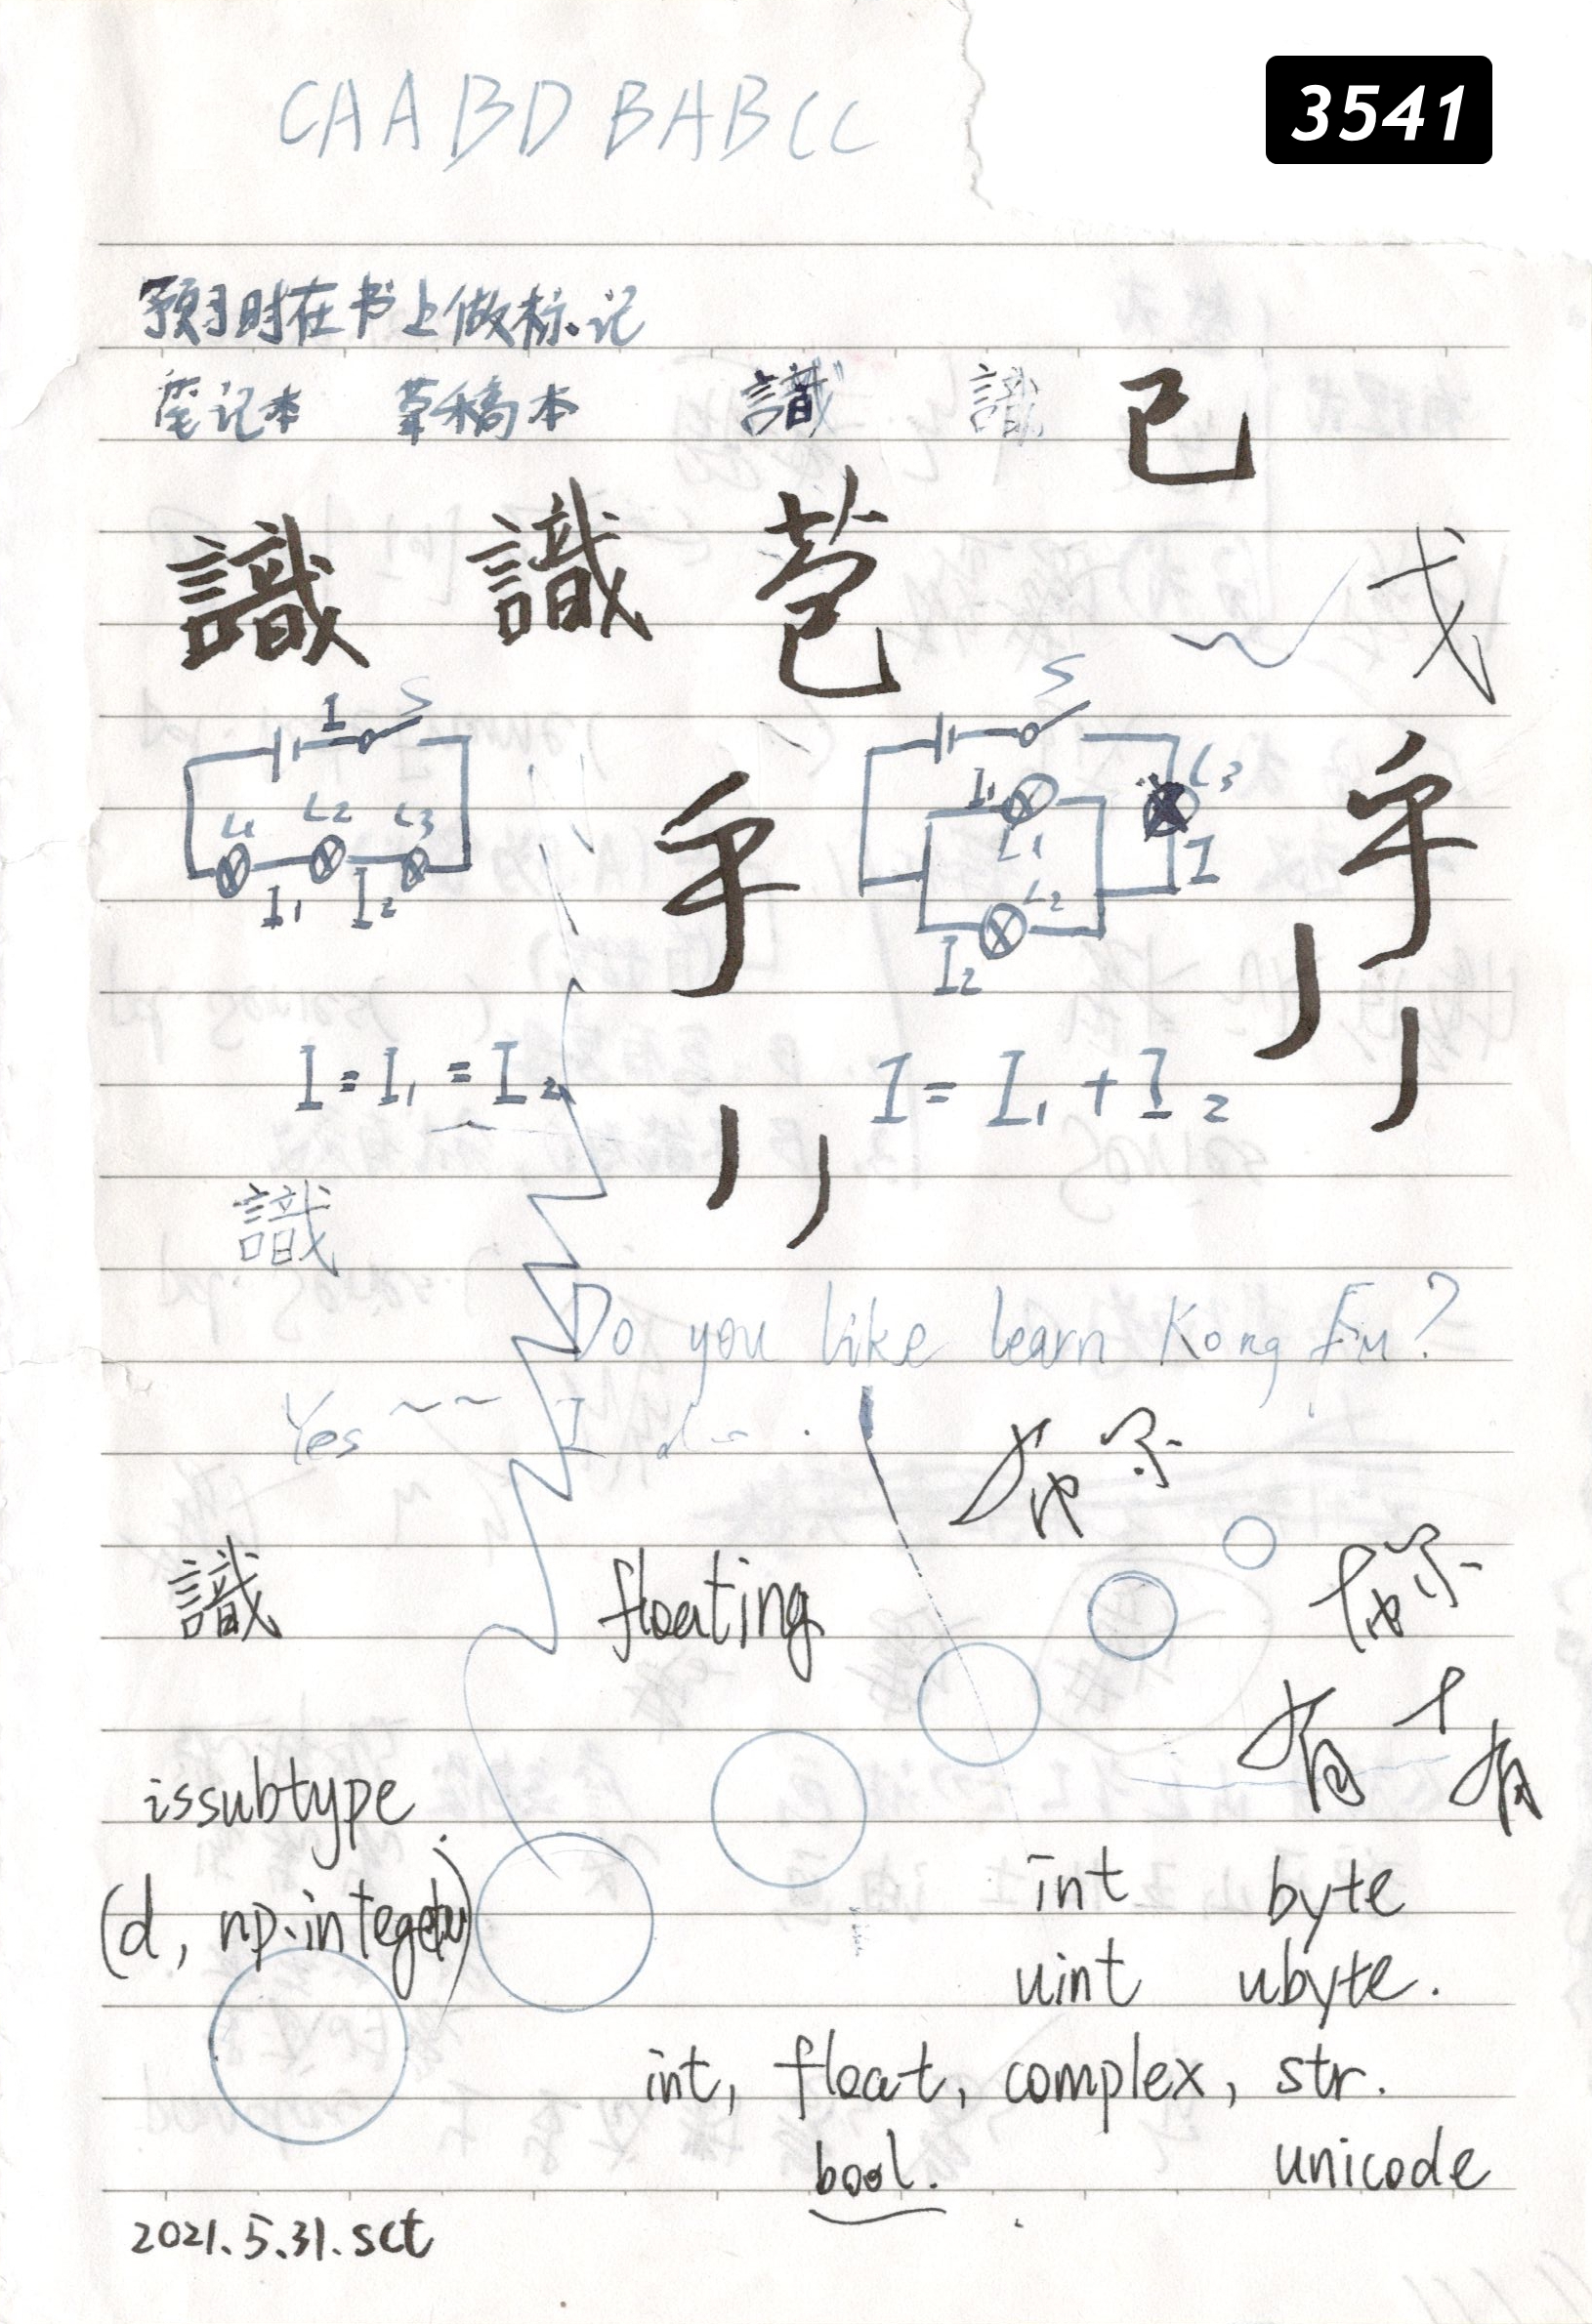 CAABD BABCC
3541
预习时在书上做标记
笔记本 草稿本 識 識 已
識 識 苞 戈
I S
L1 L2 L3
I1 I2
S
I1 L1 L3
I
L2
I2
乎 乎
I=I1=I2 I=I1+I2
識
Do you like learn Kong Fu?
Yes~~ I do.
識 floating
有 有
issubtype
(d, np.integer)
int byte
uint ubyte.
int, float, complex, str.
bool. unicode
2021.5.31.sct